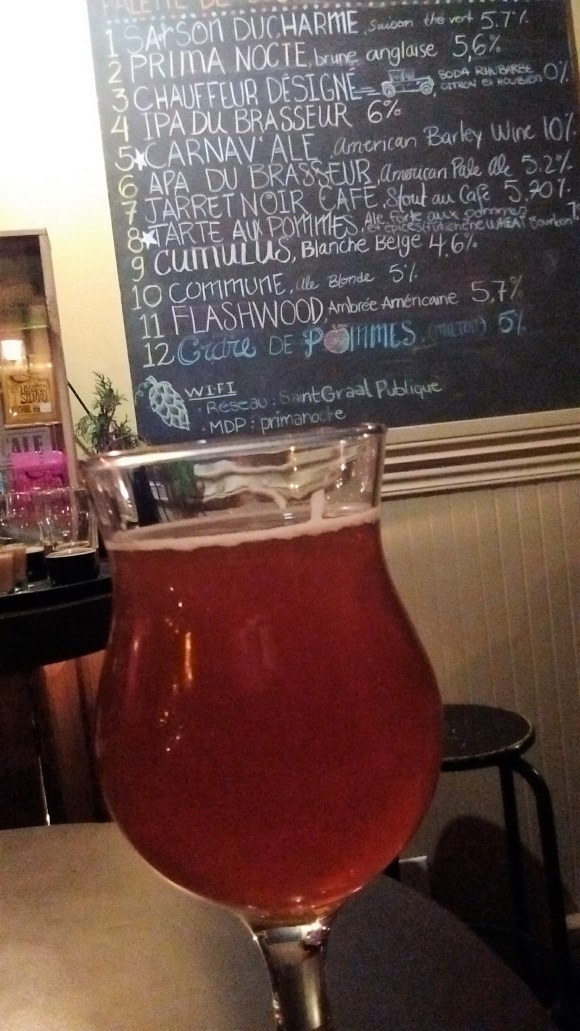 PALETTE DE
1 SAISON DUCHARME, Saison the vert 5.7%
2 PRIMA NOCTE, brune anglaise 5,6%
3 CHAUFFEUR DÉSIGNÉ SODA RHUBARBE CITRON ET HOUBLON 0%
4 IPA DU BRASSEUR 6%
5 CARNAV'ALE, American Barley Wine 10%
6 APA DU BRASSEUR, American Pale Ale 5.2%
7 JARRET NOIR CAFÉ, Stout au Café 5.70%
8 TARTE AUX POMMES, Ale forte aux pommes et épices WHEAT Bourbon
9 CUMULUS, Blanche Belge 4,6%
10 COMMUNE, Ale Blonde 5%
11 FLASHWOOD, Ambrée Américaine 5,7%
12 Cidre DE POMMES. (MILTON) 5%
WI-FI
• Réseau : SaintGraal Publique
• MDP : primanocte
ALE